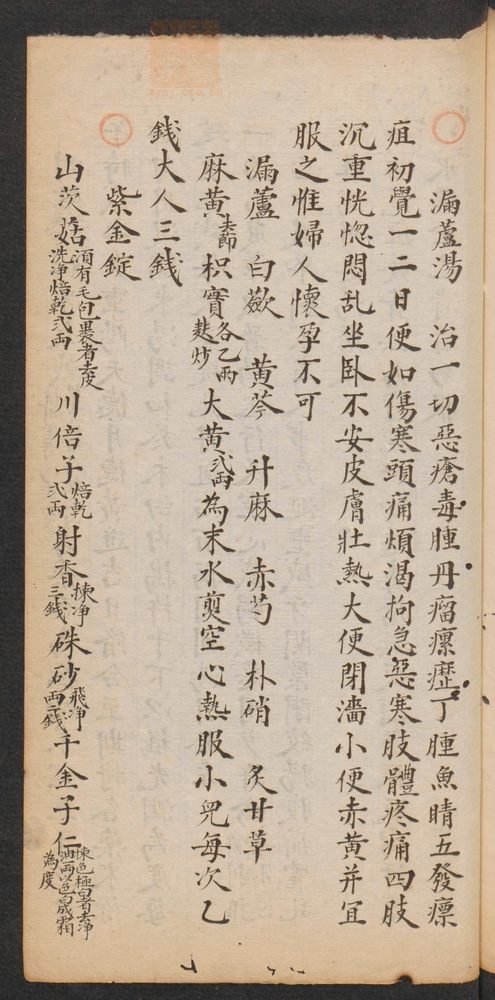 漏蘆湯 治一切惡瘡毒腫丹瘤瘰癧丁腫魚睛五發瘭
疽初覺一二日便如傷寒頭痛煩渴拘急惡寒肢體疼痛四肢
沉重恍惚悶乱坐卧不安皮膚壯熱大便閉濇小便赤黃并宜
服之惟婦人懷孕不可
漏蘆 白蘞 黃芩 升麻 赤芍 朴硝 炙甘草
麻黃去節 枳實各乙兩麩炒 大黃弍兩為末水煎空心熱服小兒每次乙
錢大人三錢
紫金錠
山茨菇須有毛包裹者去皮洗净焙乾弍兩 川倍子焙乾弍兩 射香揀净三錢 硃砂飛净 千金子仁揀色極白者去净油為度